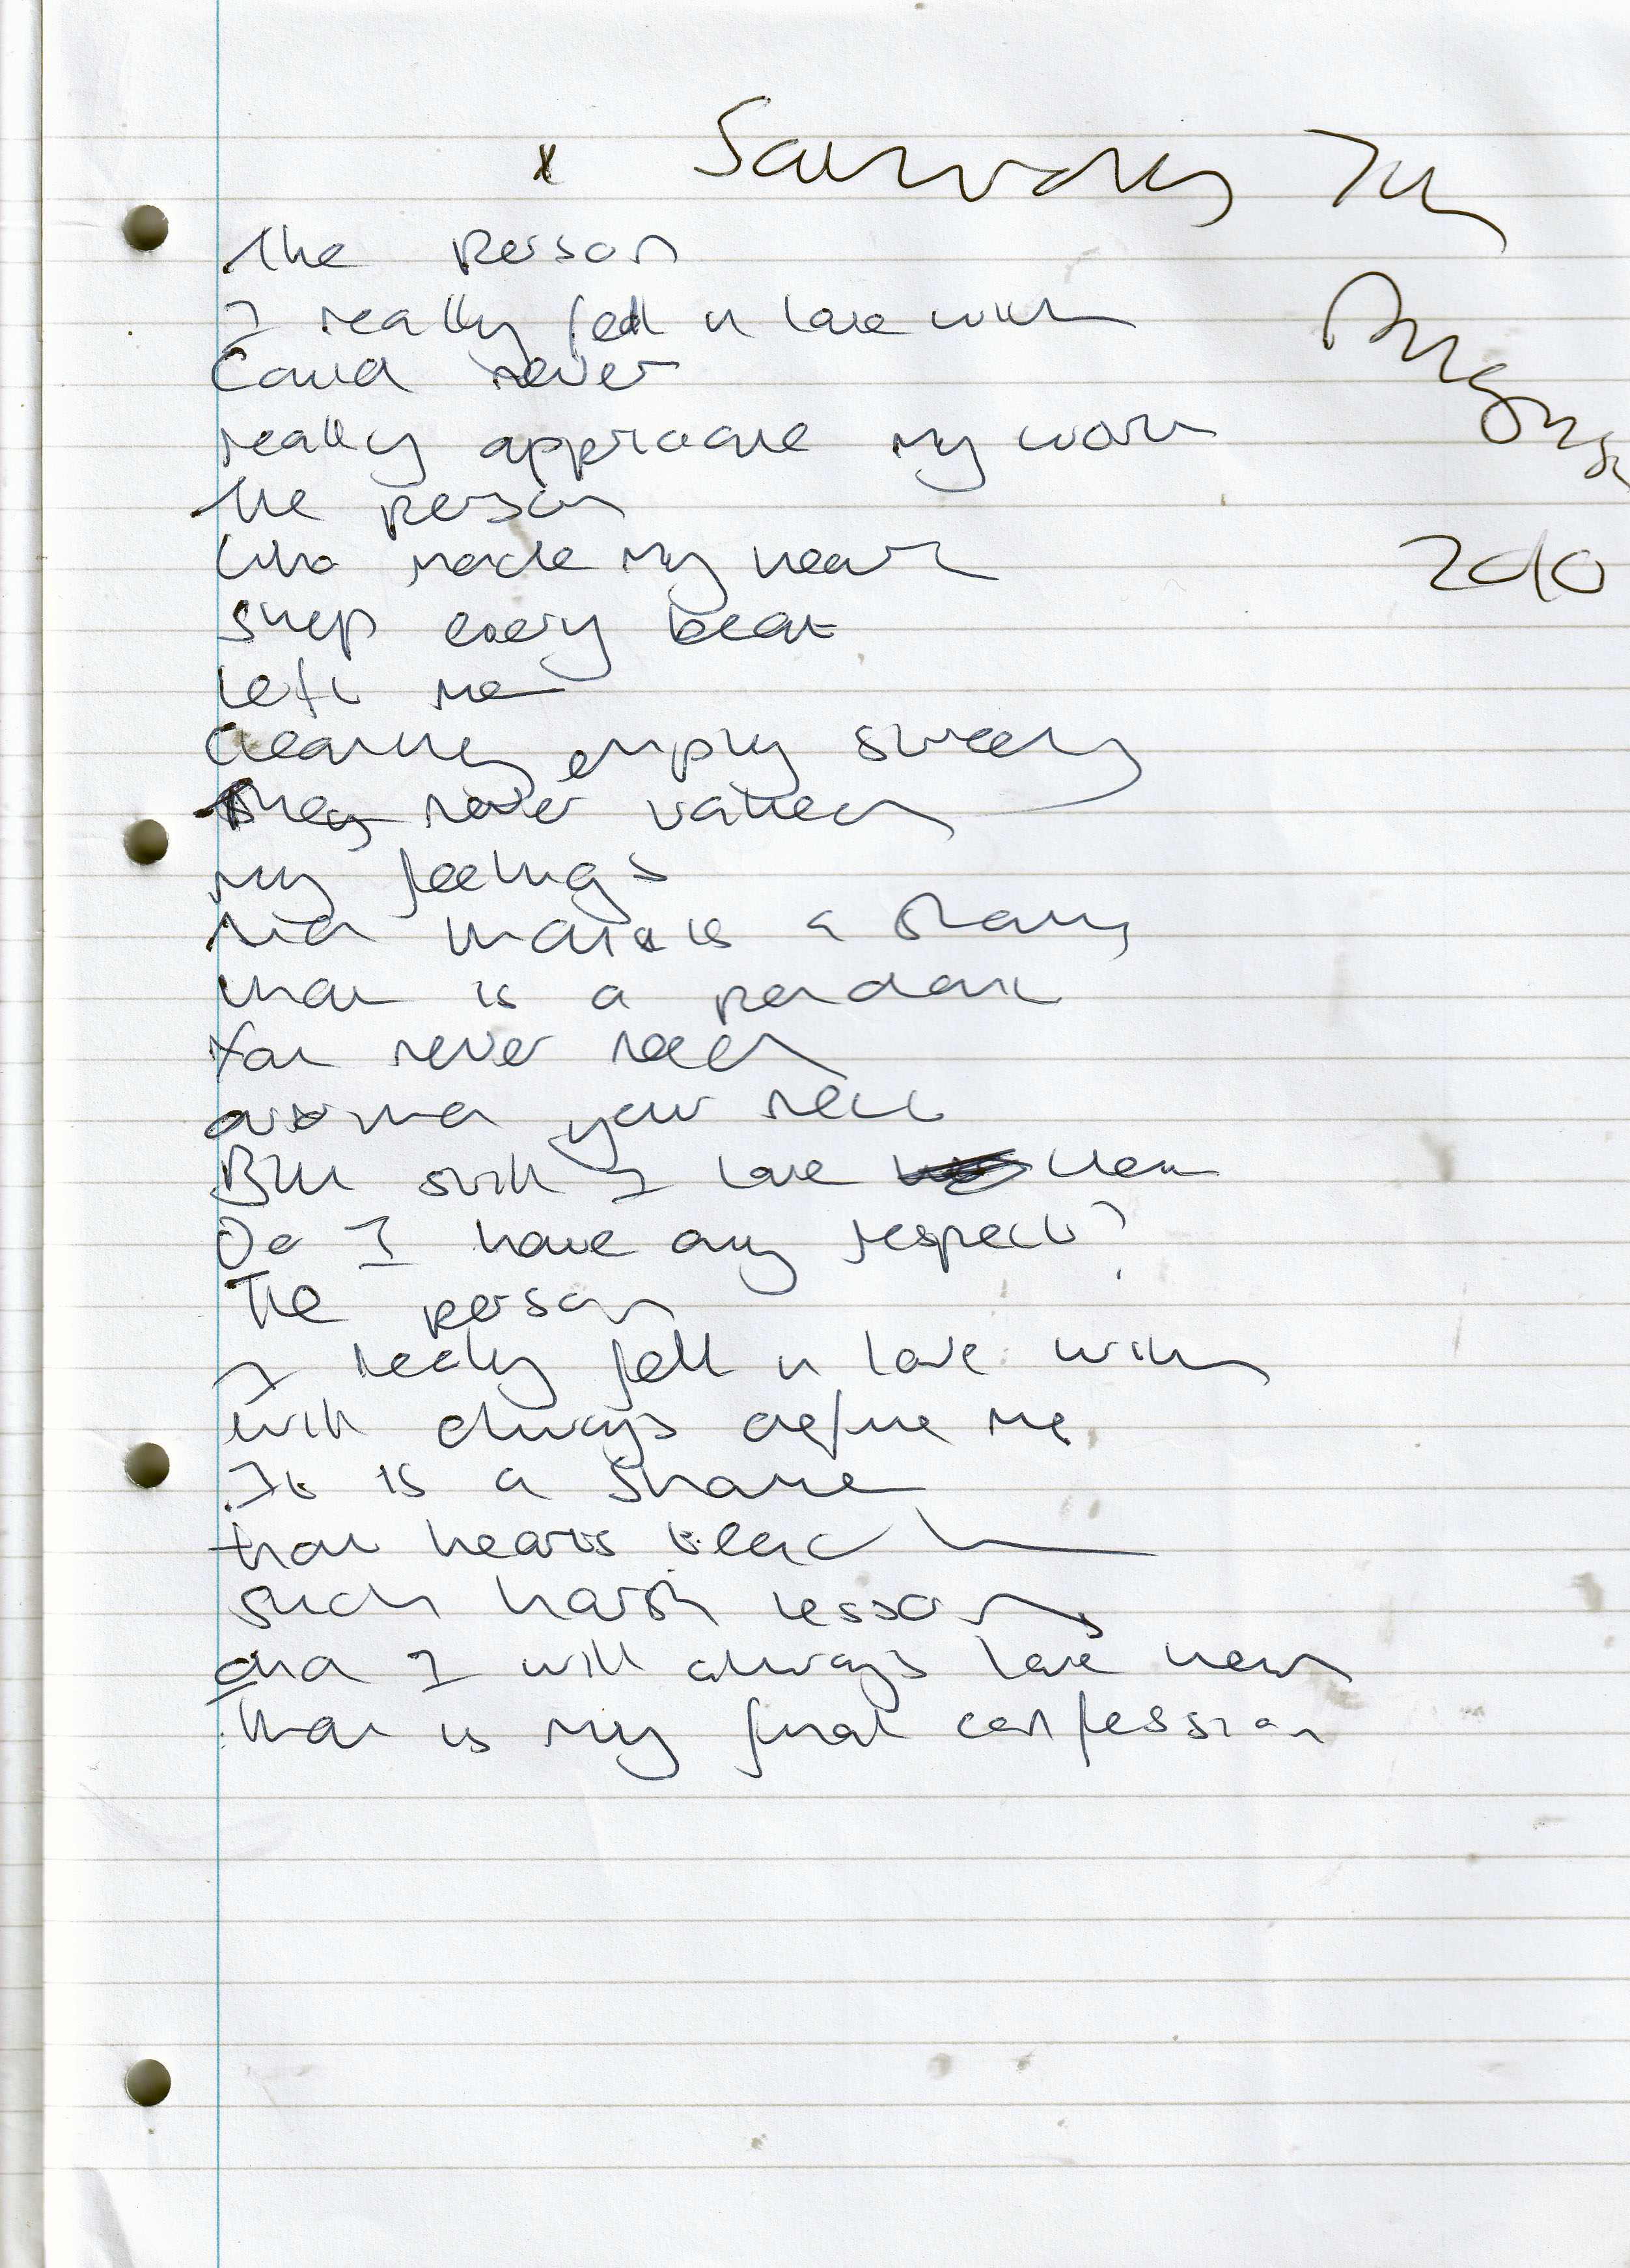 x Saturday 7th
August
2010
The person
I really fell in love with
Could never
really appreciate my work
The person
Who made my heart
skip every beat
Left me
cleaning empty
They never valued
my feelings
And that is a
that is a pendant
You never need
around your neck
But still I love them
Do I have any respect?
The person
I really fell in love with
will always define me
It is a shame
that hearts teach
such harsh lessons
and I will always love them
That is my final confession